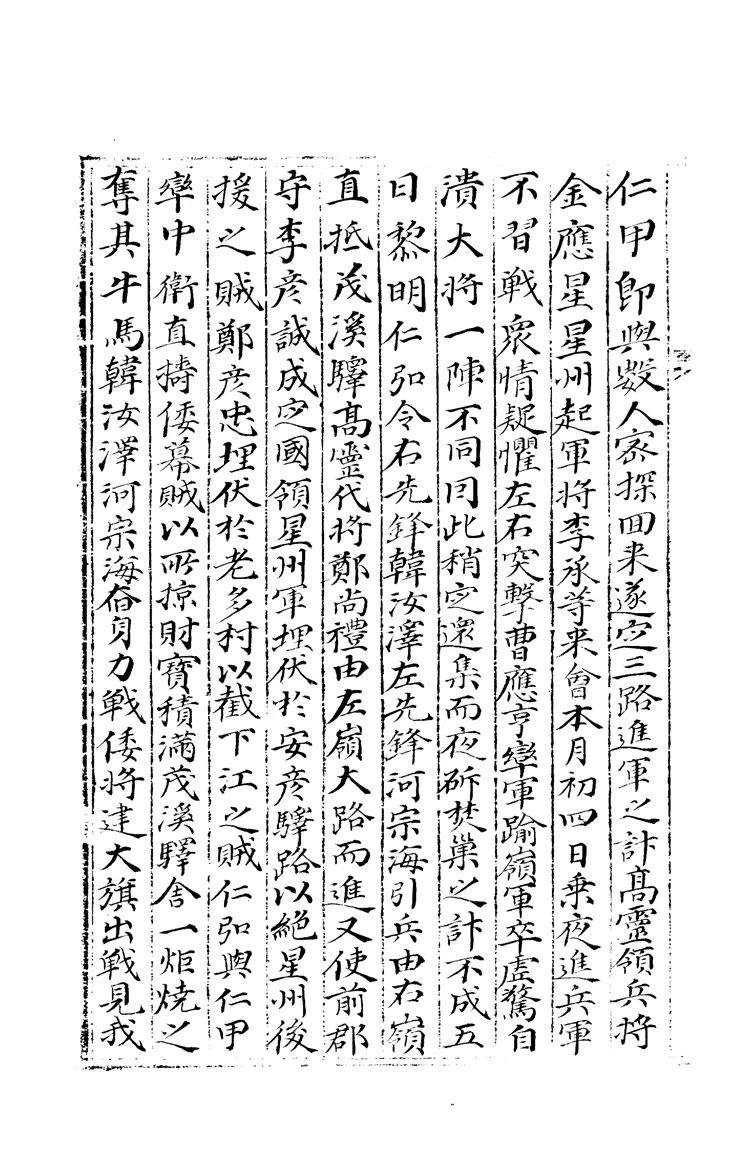 仁甲即與數人密探回来遂定三路進軍之計髙靈領兵将
金應星星州起軍将李承等来會本月初四日乗夜進兵軍
不習戦衆情疑懼左右突擊曹應亨率軍踰嶺軍卒虛驚自
潰大将一陣不同因此稍定還集而夜斫焚巢之計不成五
日黎明仁弘令右先鋒韓汝澤左先鋒河宗海引兵由右嶺
直抵茂溪驛髙靈代将鄭尚禮由左嶺大路而進又使前郡
守李彦誠成定國領星州軍埋伏於安彦驛路以絕星州後
援之賊鄭彦忠埋伏於老多村以截下江之賊仁弘與仁甲
率中衛直擣倭幕賊以所掠財寶積滿茂溪驛舍一炬焼之
奪其牛馬韓汝澤河宗海奮身力戦倭将建大旗出戦見我